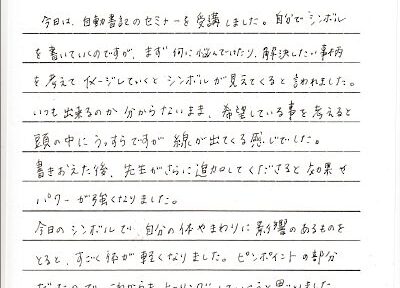 今日は、自動書記のセミナーを受講しました。自分でシンボル
を書いていくのですが、まず何に悩んでいたり、解決したい事柄
を考えてイメージしていくとシンボルが見えてくると言われました。
いつも出来るのか分からないまま、希望している事を考えると
頭の中にうっすらですが線が出てくる感じでした。
書きおえた後、先生がさらに追加してくださると効果や
パワーが強くなりました。
今日のシンボルで、自分の体やまわりに影響のあるものを
とると、すごく体が軽くなりました。ピンポイントの部分